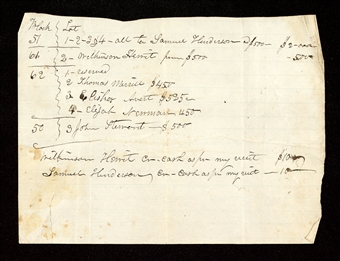 Block Lot
51 1-2-3&4 - all to Samuel Hinderson $500 -
61 2 - Wilkinson Hewit $500 - 500
62 1 - reserved
2 Thomas Warrick $455
3 Elisha Averett $525
4 - Elijah Newman 450
50 3 John Stewart - $500
Wilkinson Hewit Cr - Cash as per my receit $100
Samuel Hinderson Cr - Cash as per my receit - 10